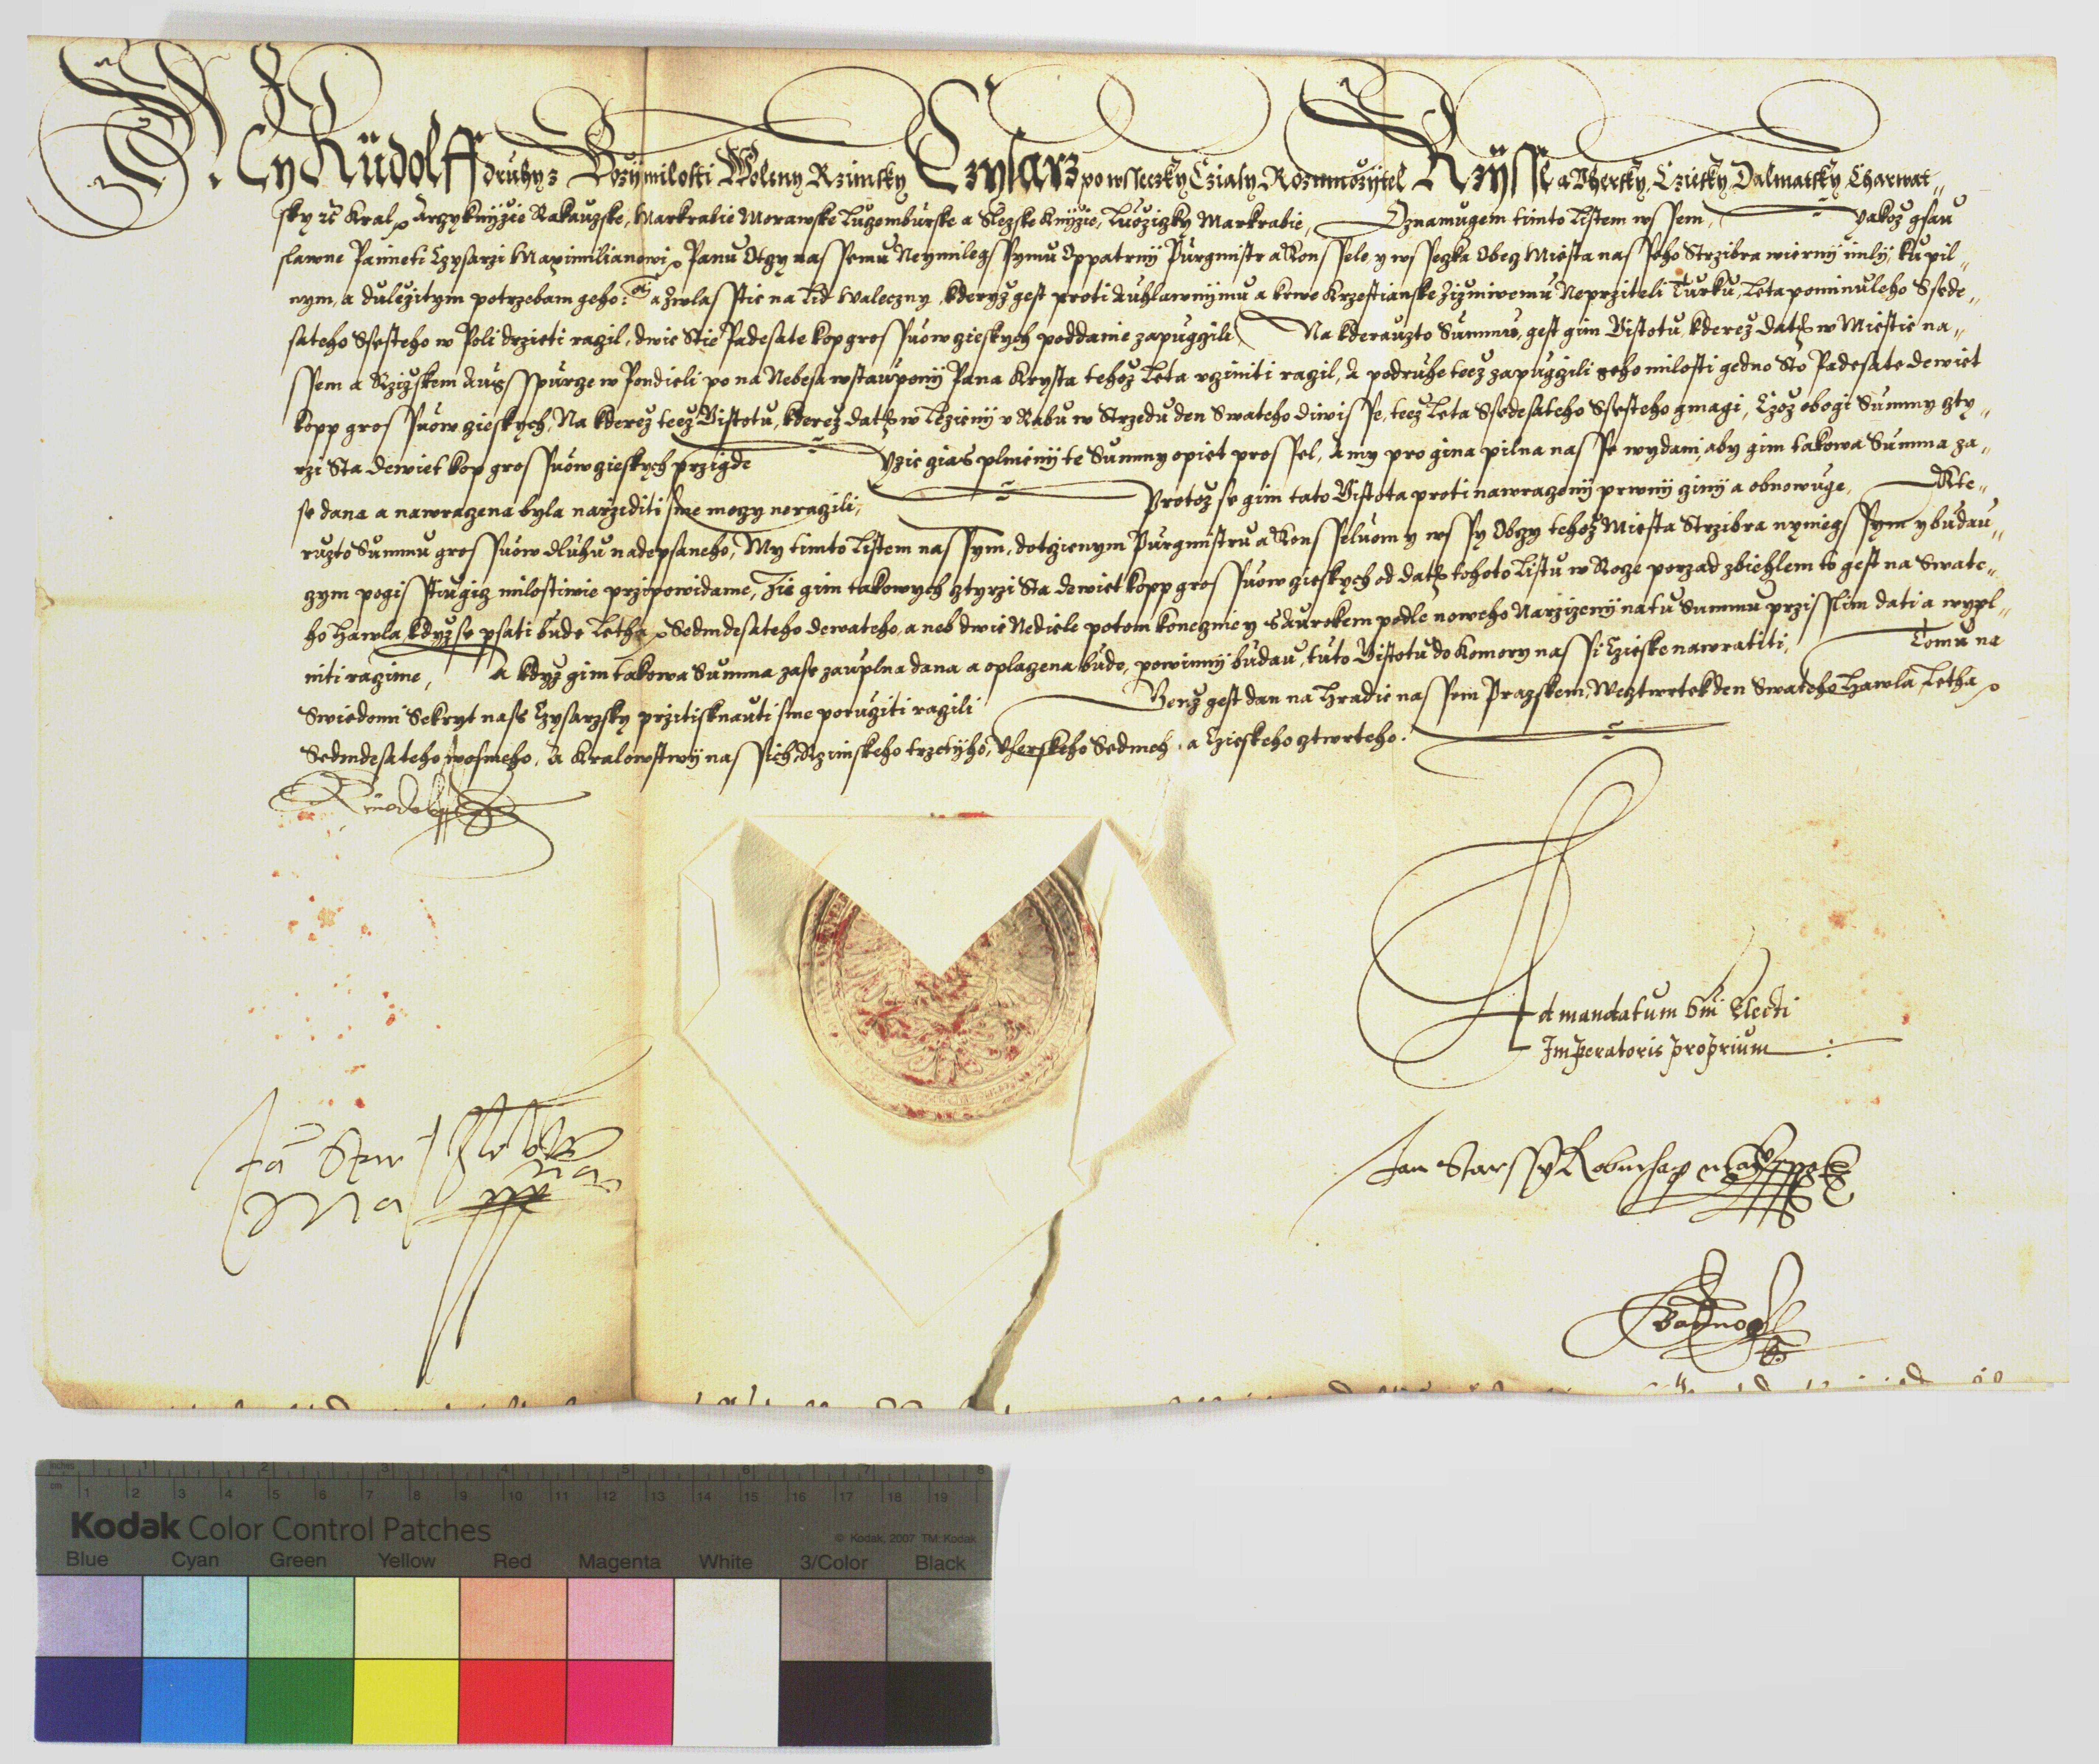 My Rudolff druhy z Bozy milosti Woleny Rzimsky Czysarz po wssecky Cziasy Rozmnozytel Rzysse a Uhersky, Czesky, Dalmatsky, Charwat„
sky ꝛc̃ Kral, Arzyknyze Rakauzske, Markrabie Morawske Luczemburske a Slezske Knyze, Luziczky Markrabie, Oznamugem timto Listem wssem, yakoz gsau
slawne Pameti Czysarzi Maximilianowi, Panu Otczy nassemu Neymilegssymu Oppatrny Purgmistr a Konssele, y wsseczka Obecz Miesta nasseho Strzibra wierny mily, ku pil„
nym, a dulezitym potrzebam geho: a zwlasstie na Lid Waleczny, kderyz gest proti Auhlawnymu a krwe Krzestianske ziznivemu Neprziteli Turku, Leta pominuleho Ssede„
sateho Ssesteho w Poli drzieti raczil, dwie Stie Padesate kop grossuow czieskych poddanie zapuczczili, Na kderauzto Summu, gest gim Bistotu, kderez datum w Miestie na„
ssem a Rzizskem Augsspurze w Pondieli po na Nebesa wstaupeny Pana Krysta tehoz Leta ucziniti raczil, A podruhe teez zapuczczili geho milosti gedno Sto Padesate dewiet
kopp grossuow czieskych, Na kderez teez Bistotu, kderez datum w Lezeny u Rabu w Strzedu den Swateho Diwisse, teez Leta Ssedesateho Ssesteho gmagi, Czoz obogi Summy czty„
rzi Sta dewiet kop grossuow czieskych przigde Uzie gias plnieny te Summy opiet prossel, A my pro gina pilna nasse wydani, aby gim takowa Summa za„
se dana a nawraczena byla narziditi sme moczy neraczili, Protoz se gim tato Bistota proti nawraczeny prwny cziny a obnowuge, Kte„
ruzto Summu grossuow dluhu nadepsaneho, My timto Listem nassym, dotczenym Purgmistru a Konsseluom y wssy Obczy tehoz Miesta Strzibra nyniegssym y budau„
czym pogisstiugicz milostiwie przipowidame, Zie gim takowych cztyrzi Sta dewiet kopp grossuow czieskych od datum tohoto Listu w Rocze porzad zbiehlem to gest na Swate„
ho Hawla, kdyz se psati bude Letha Sedmdesateho dewateho, a neb dwie Nediele potom konecznie y s Aurokem podle noweho Narzizeny na tu Summu przisslim dati a wypl„
niti raczime, A kdyz gim takowa Summa zase zauplna dana a oplaczena bude, powinny budau, tuto Bistotu do Komory nassi Czieske nawratiti, Tomu na
Swiedomi Sekryt nass Czysarzsky przitisknauti sme porucziti raczili Genz gest dan na Hradie nassem Prazskem, We cztwrtek den Swateho Hawla, Letha
Sedmdesateho wosmeho, A Kralowstwy nassich Rzimskeho trzetiho, Uherskeho Sedmeho, a Czieskeho cztwrteho.
Rudolff
Ad mandatum Dni Electi
Imperatoris proprium
Jan Starssy